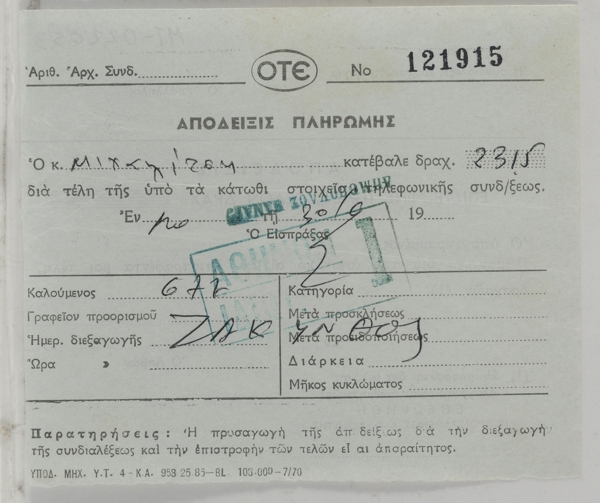 Ἀριθ. Ἀρχ. Συνδ. ΟΤΕ No 121915
ΑΠΟΔΕΙΞΙΣ ΠΛΗΡΩΜΗΣ
Ὁ κ. κατέβαλε δραχ. 2315
διὰ τέλη τῆς ὑπὸ τὰ κάτωθι στοιχεῖα τηλεφωνικῆς συνδ/ξεως.
Ἐν τῇ 30/6 19
Ὁ Εἰσπράξας
1
Καλούμενος 672 Κατηγορία
Γραφεῖον προορισμοῦ ΖΑΚΥΝΘΟΣ Μετὰ προσκλήσεως
Ἡμερ. διεξαγωγῆς Μετὰ προειδοποιήσεως
Ὥρα » Διάρκεια
Μῆκος κυκλώματος
Παρατηρήσεις : Ἡ προσαγωγὴ τῆς ἀπ δείξεως διὰ τὴν διεξαγωγὴ
τῆς συνδιαλέξεως καὶ τὴν ἐπιστροφὴν τῶν τελῶν εἶ αι ἀπαραίτητος.
ΥΠΟΔ. ΜΗΧ. Υ.Τ. 4 - Κ.Α. 958 25.85-BL 100.000-7/70